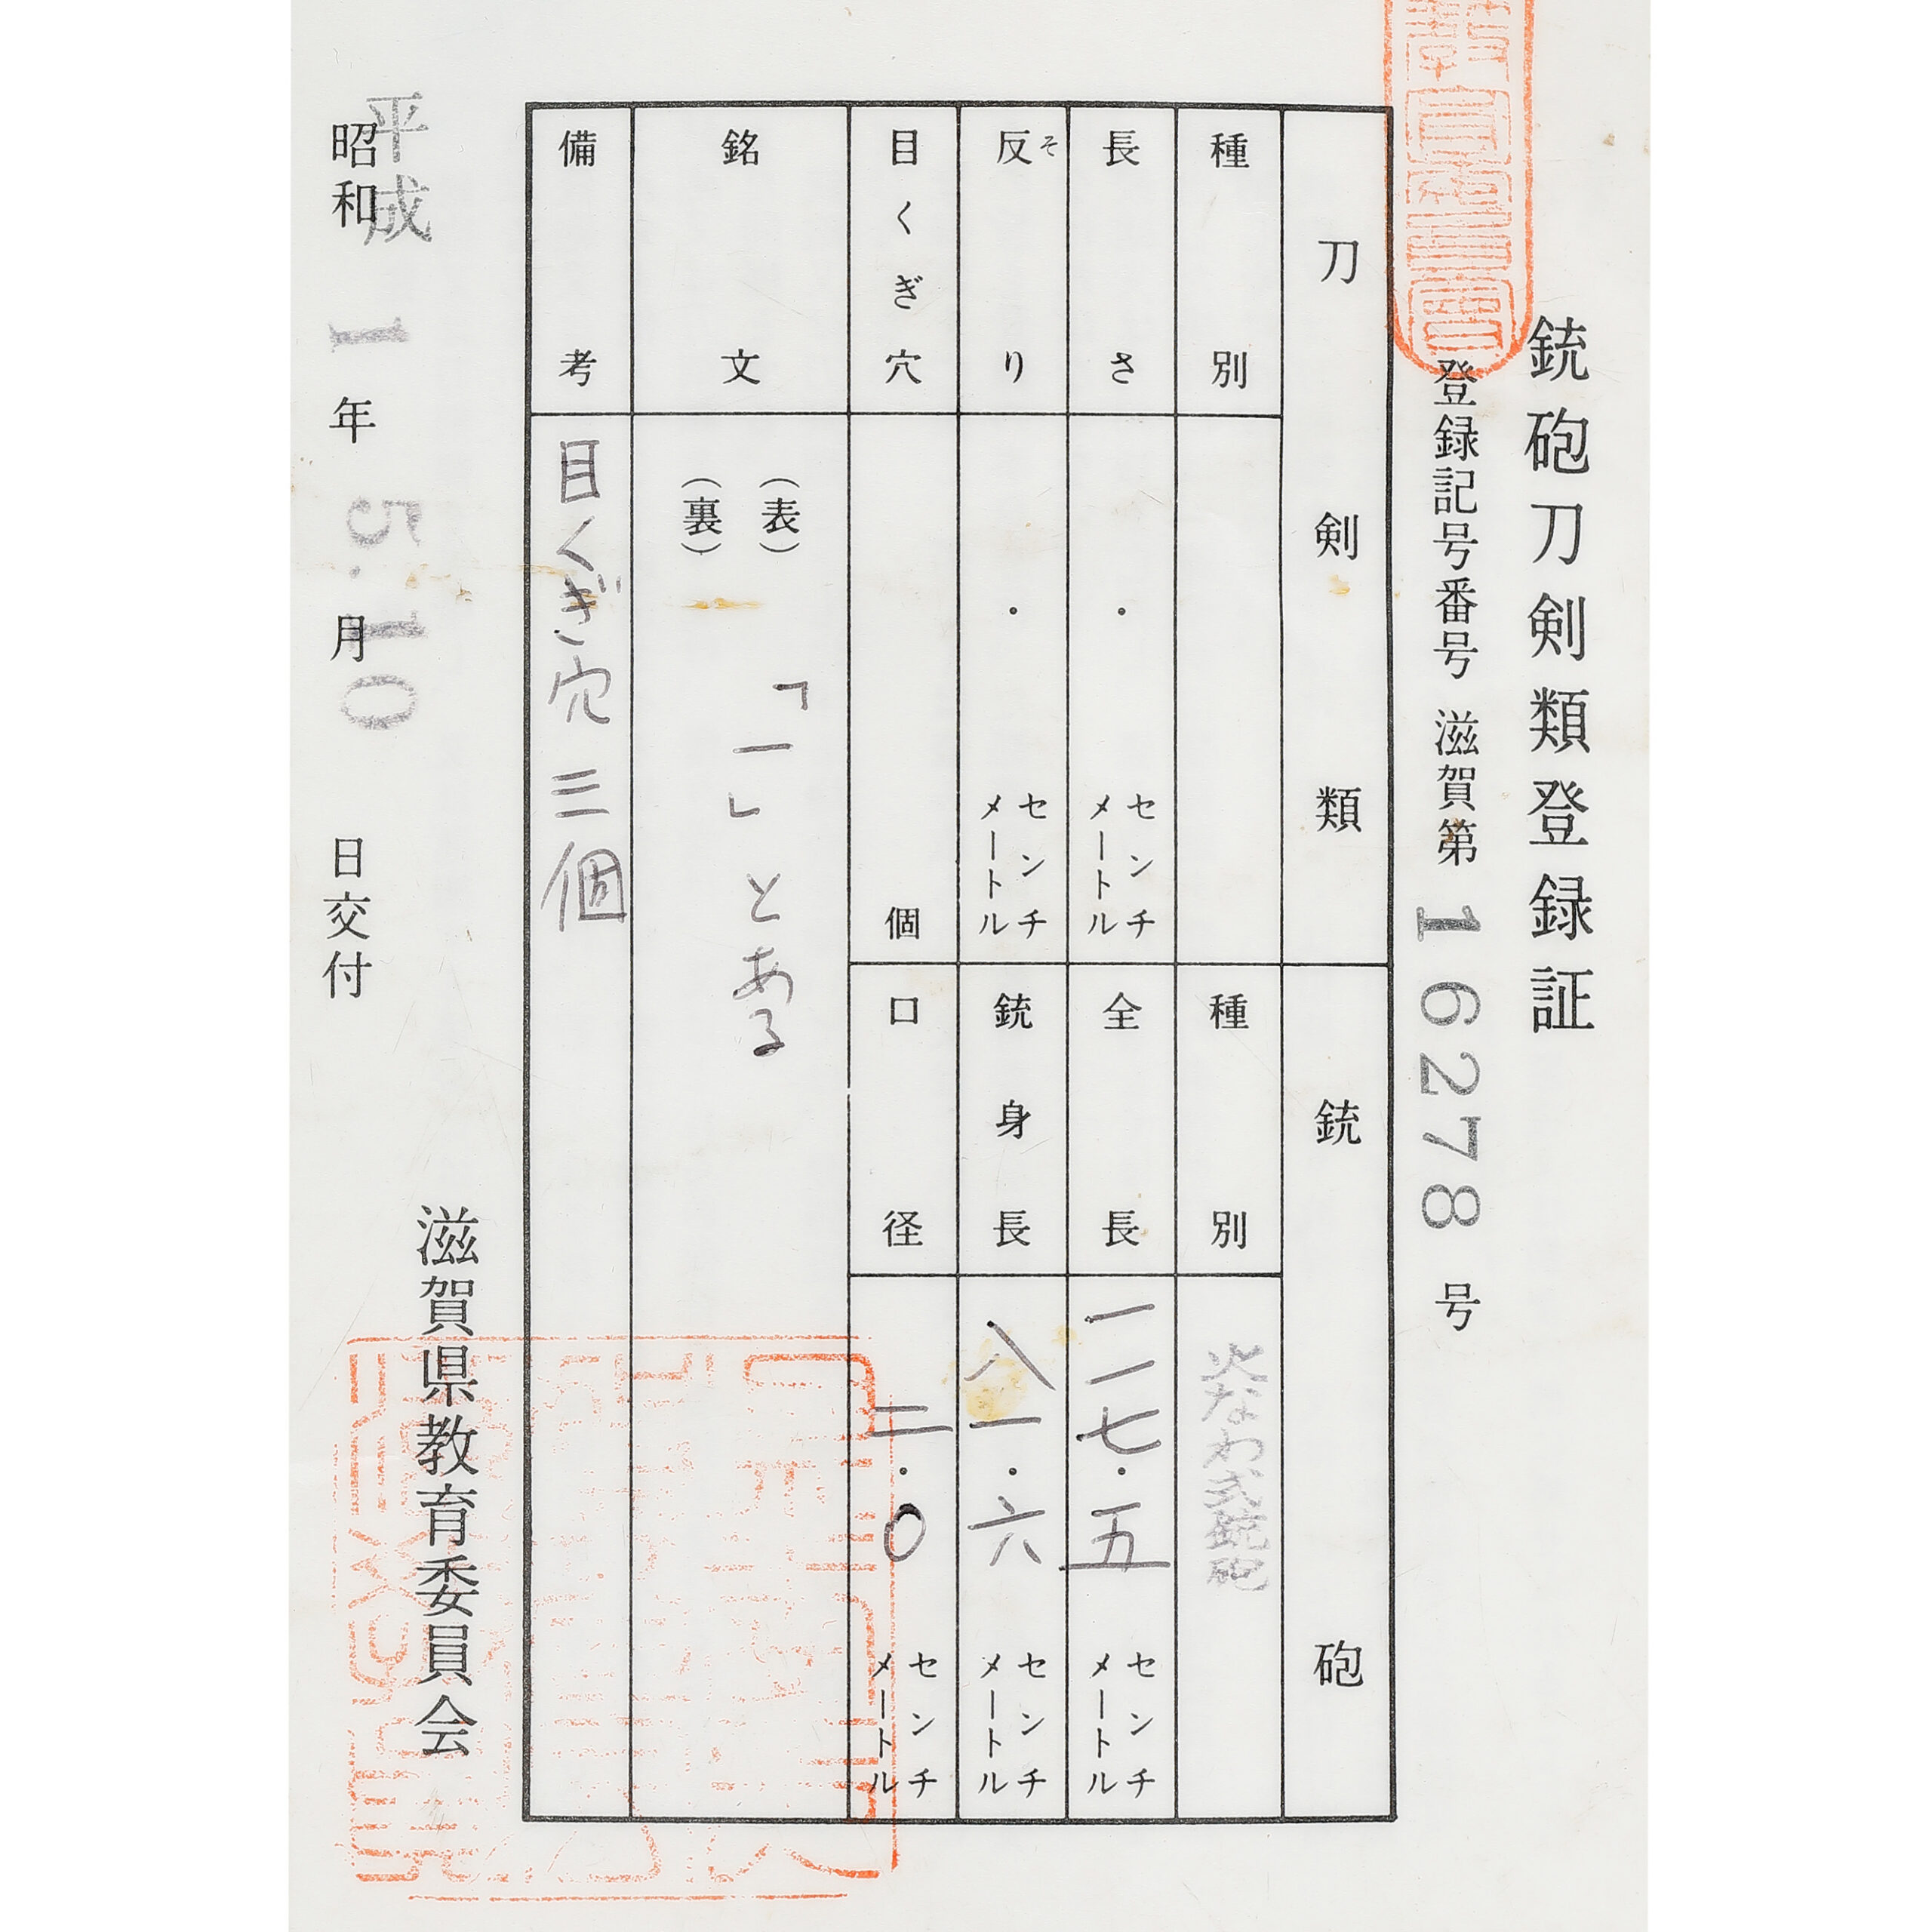 銃砲刀剣類登録証
登録記号番号 滋賀第 16278 号
刀剣類
銃砲
種別
種別 火なわ式銃砲
長さ ・ センチメートル
全長 一一七・五 センチメートル
反り そ ・ センチメートル
銃身長 八一・六 センチメートル
目くぎ穴 個
口径 二・0 センチメートル
銘文 (表)
(裏)
「一」とある
備考 目くぎ穴三個
昭和 平成 1 年 5.10 月 日交付
滋賀県教育委員会